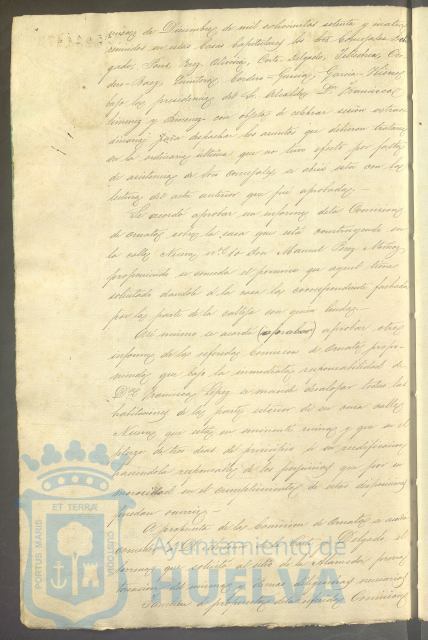 de Diciembre de mil ochocientos setenta y
reunidos en estas Casas Capitulares los Sres Concejales
bajo la presidencia del Sr. Alcalde Dn Francisco
Jimenez y con objeto de celebrar sesión
para despachar los asuntos que debieron tratarse
en la ordinaria última que no tuvo efecto por falta
de asistencia de Sres concejales se abrió esta con la
lectura del acta anterior que fué aprobada.
Se acordó aprobar un informe de la Comision
de ornato sobre la casa que está construyendo en
la calle Nueva nº 10 don Manuel Perez
proponiendo se conceda el permiso que aquel tiene
solicitado dandole á la casa la correspondiente fachada
por la parte de la calleja con quien linda.
Asi mismo se acordó (aprobar) aprobar otro
informe de la referida Comision de Ornato
que bajo la inmediata responsabilidad de
Dña Francisca Lopez se mande desalojar todas las
habitaciones de la parte interior de su casa calle
Nueva que estan en inminente ruina y que en el
plazo de tres dias de principio á su reedificacion
haciendola responsable de los perjuicios que por su
morosidad en el cumplimiento de estas disposiciones
puedan ocurrir.
A propuesta de la Comision de Ornato se acordó
conceder á Delgado el
terreno que solicita al sitio de la Alameda previa
del mismo y demas diligencias necesarias
Tambien á propuesta de la referida Comision
PORTUS MARIS ET TERRÆ CUSTODIA
Ayuntamiento de
HUELVA